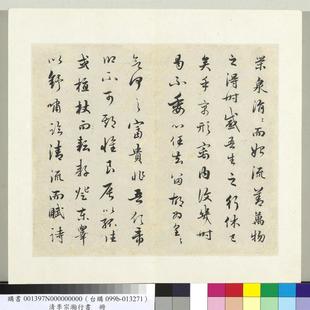 泉涓涓而始流善萬物
之得時感吾生之行休已
矣乎寓形 內復幾時
曷不委心任去留胡為
欲何之富貴非吾願帝
鄉不可期懷良辰以孤往
或植杖而耘耔登東皋
以舒嘯臨清流而賦詩
購書 001397N000000000 (台購 099b-013271)
清李宗瀚行書 冊